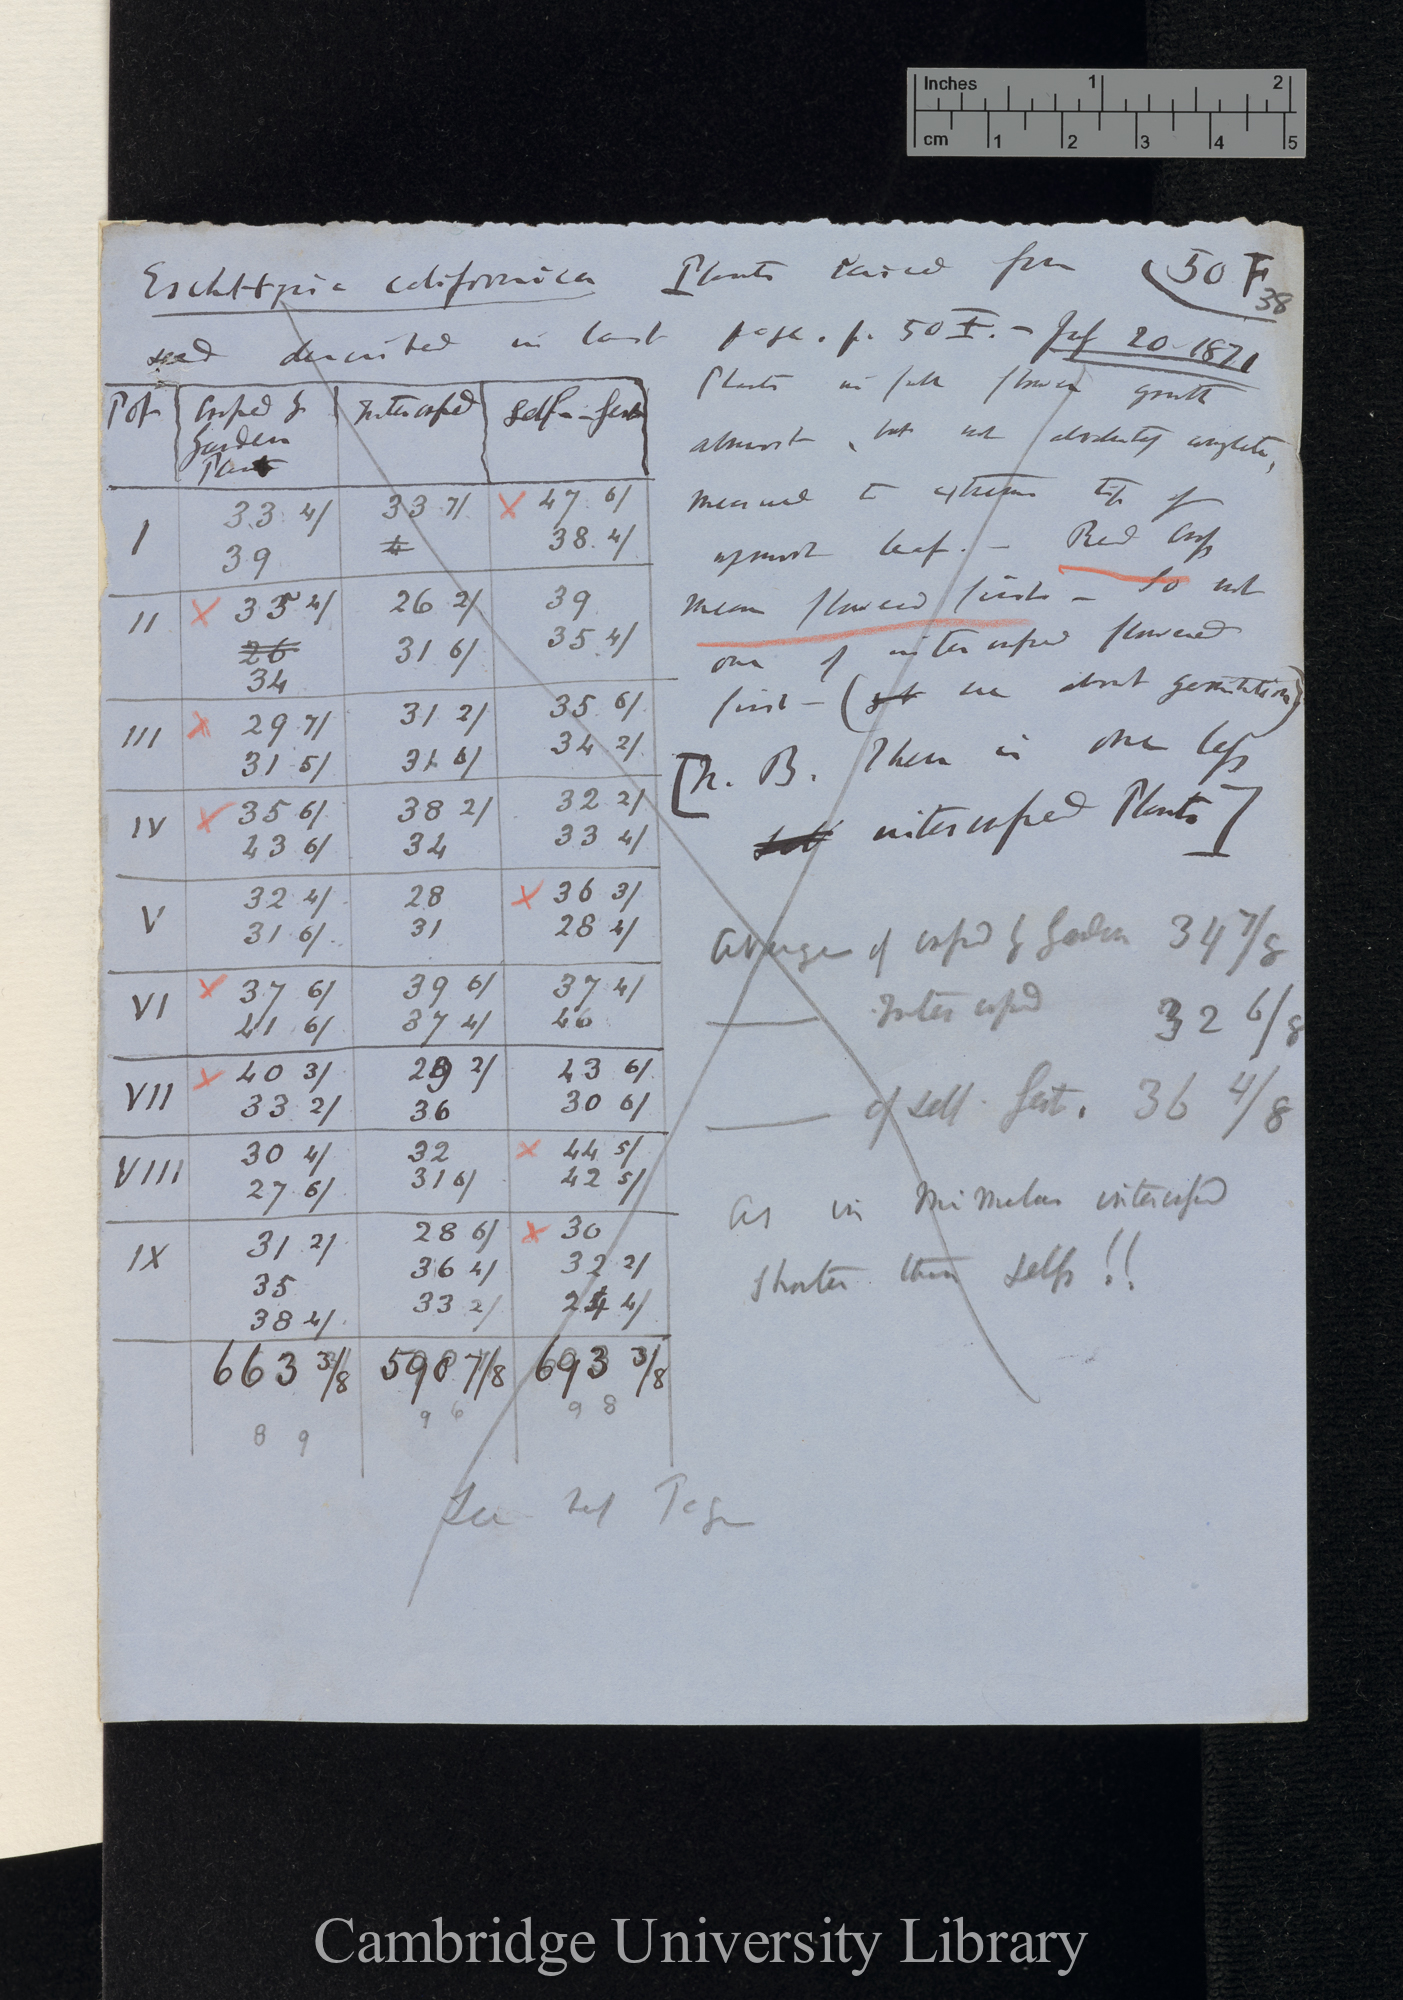 Inches 1 2
cm 1 2 3 4 5
Eschltzia californica Plants raised from 50 F
38
seed described in last page. p. 50 I. - July 20 - 1871
Pot Crossed by Garden Plant Intercrossed Self-Fert
I 33 4/ 33 7/ X 47 6/
39 38 4/
II X 35 4/ 26 2/ 39
26 31 6/ 35 4/
34
III X 29 7/ 31 2/ 35 6/
31 5/ 31 6/ 34 2/
IV X 35 6/ 38 2/ 32 2/
43 6/ 34 33 4/
V 32 4/ 28 X 36 3/
31 6/ 31 28 4/
VI X 37 6/ 39 6/ 37 4/
41 6/ 37 4/ 40
VII X 40 3/ 29 2/ 43 6/
33 2/ 36 30 6/
VIII 30 4/ 32 X 44 5/
27 6/ 31 6/ 42 5/
IX 31 2/ 28 6/ X 30
35 36 4/ 32 2/
38 4/ 33 2/ 24 4/
663 3/8 598 7/8 693 3/8
8 9 9 6 9 8
Plants in full flower growth
almost, but not absolutely complete,
measured to extreme tip of
upmost leaf. - Red Cross
mean flowered first - So not
one of intercrossed flowered
first - (see about germination)
[N. B. There is one less
intercrossed Plants]
Average of crossed by Garden 34 7/8
— Intercrossed 32 6/8
— of self-fert. 36 4/8
As in Mimulus intercrossed
shorter than selfs!!
See next Page
Cambridge University Library